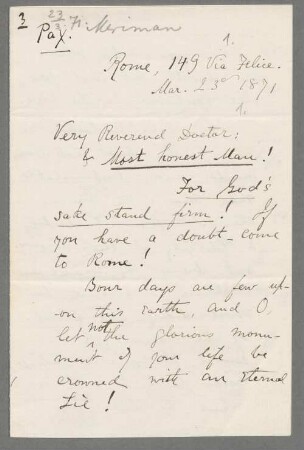 3
23/3 71. Meriman
Pax!
1.
Rome, 149 Via Felice.
Mar. 23d 1871
1.
Very Reverend Doctor:
& Most honest Man!
For God's
sake stand firm! If
you have a doubt — come
to Rome!
Bour days are few up-
on this earth, and O,
let not the glorious monu-
ment of your life be
crowned with an Eternal
Lie!